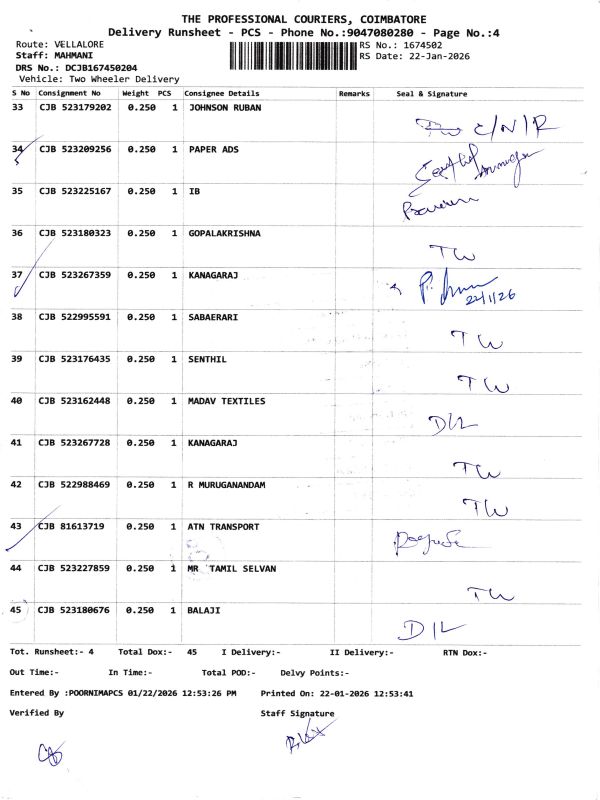 THE PROFESSIONAL COURIERS, COIMBATORE
Delivery Runsheet - PCS - Phone No.:9047080280 - Page No.:4
Route: VELLALORE
Staff: MAHMANI
DRS No.: DCJB167450204
Vehicle: Two Wheeler Delivery
RS No.: 1674502
RS Date: 22-Jan-2026
S No Consignment No Weight PCS Consignee Details Remarks Seal & Signature
33 CJB 523179202 0.250 1 JOHNSON RUBAN C/N/R
34 CJB 523209256 0.250 1 PAPER ADS
35 CJB 523225167 0.250 1 IB
36 CJB 523180323 0.250 1 GOPALAKRISHNA TW
37 CJB 523267359 0.250 1 KANAGARAJ 22/1/26
38 CJB 522995591 0.250 1 SABAERARI TW
39 CJB 523176435 0.250 1 SENTHIL TW
40 CJB 523162448 0.250 1 MADAV TEXTILES D/L
41 CJB 523267728 0.250 1 KANAGARAJ TW
42 CJB 522988469 0.250 1 R MURUGANANDAM TW
43 CJB 81613719 0.250 1 ATN TRANSPORT
44 CJB 523227859 0.250 1 MR TAMIL SELVAN TW
45 CJB 523180676 0.250 1 BALAJI D/L
Tot. Runsheet:- 4 Total Dox:- 45 I Delivery:- II Delivery:- RTN Dox:-
Out Time:- In Time:- Total POD:- Delvy Points:-
Entered By :POORNIMAPCS 01/22/2026 12:53:26 PM Printed On: 22-01-2026 12:53:41
Verified By Staff Signature